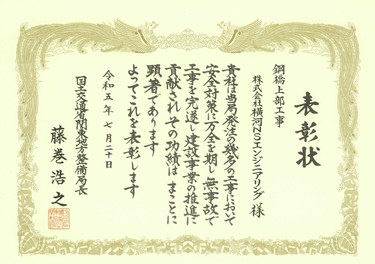 表彰状
鋼橋上部工事
株式会社横河NSエンジニアリング 様
貴社は当局発注の幾多の工事において
安全対策に万全を期し無事故で
工事を完遂し建設事業の推進に
貢献されその功績はまことに
顕著であります
よってこれを表彰します
令和五年七月二十日
国土交通省関東地方整備局長
藤巻浩之